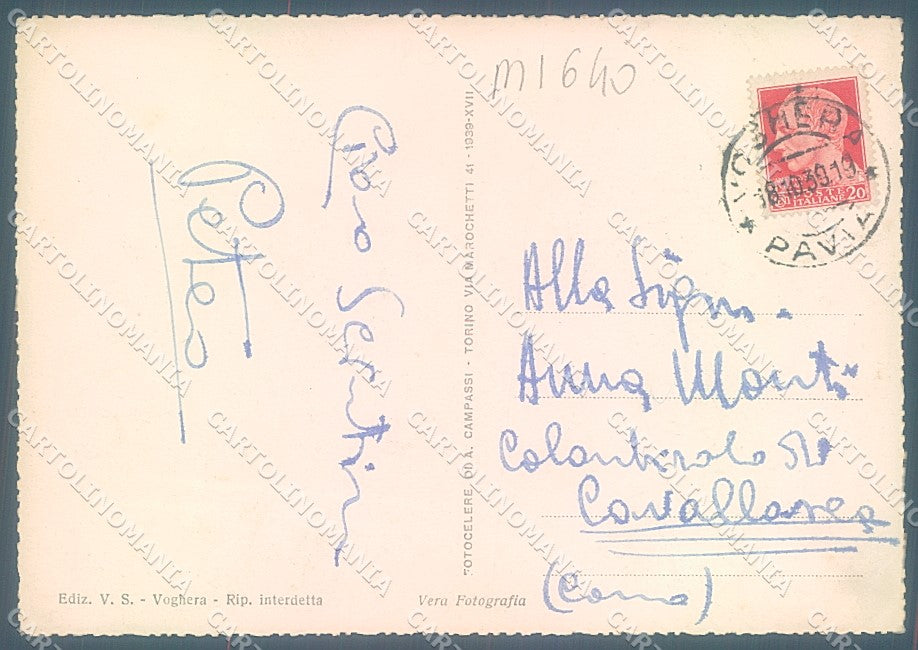 m1640
VOGHERA
8.10.39.19
PAVIA
POSTE ITALIANE
20
Alla Sign.
Anna Monti
Cavallasca
(Como)
FOTOCELERE DI A. CAMPASSI - TORINO VIA MAROCHETTI 41 - 1939-XVII
Ediz. V. S. - Voghera - Rip. interdetta
Vera Fotografia
CARTOLINOMANIA